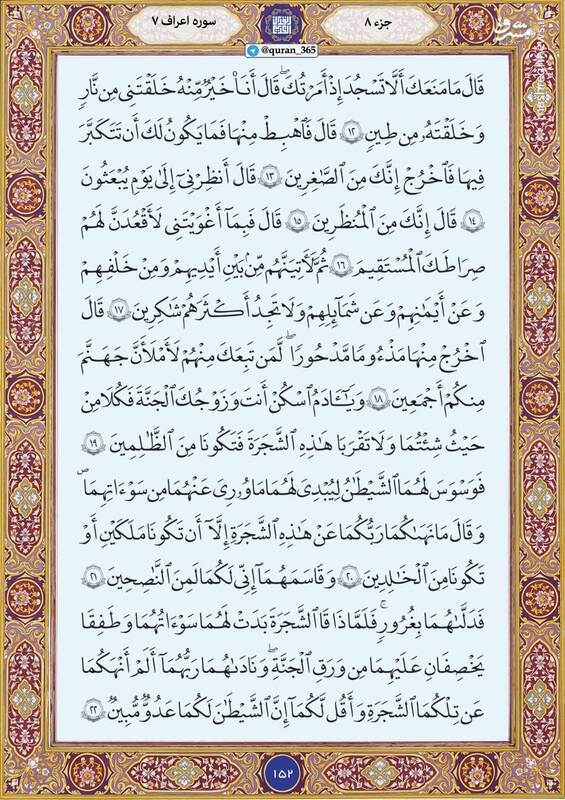 سوره اعراف ۷
جزء ۸
@quran_365
قَالَ مَا مَنَعَكَ أَلَّا تَسْجُدَ إِذْ أَمَرْتُكَ ۖ قَالَ أَنَا۠ خَيْرٌ مِّنْهُ خَلَقْتَنِي مِن نَّارٍ
وَخَلَقْتَهُۥ مِن طِينٍ ۱۲ قَالَ فَٱهْبِطْ مِنْهَا فَمَا يَكُونُ لَكَ أَن تَتَكَبَّرَ
فِيهَا فَٱخْرُجْ إِنَّكَ مِنَ ٱلصَّٰغِرِينَ ۱۳ قَالَ أَنظِرْنِيٓ إِلَىٰ يَوْمِ يُبْعَثُونَ
۱۴ قَالَ إِنَّكَ مِنَ ٱلْمُنظَرِينَ ۱۵ قَالَ فَبِمَآ أَغْوَيْتَنِي لَأَقْعُدَنَّ لَهُمْ
صِرَٰطَكَ ٱلْمُسْتَقِيمَ ۱۶ ثُمَّ لَأٓتِيَنَّهُم مِّنۢ بَيْنِ أَيْدِيهِمْ وَمِنْ خَلْفِهِمْ
وَعَنْ أَيْمَٰنِهِمْ وَعَن شَمَآئِلِهِمْ وَلَا تَجِدُ أَكْثَرَهُمْ شَٰكِرِينَ ۱۷ قَالَ
ٱخْرُجْ مِنْهَا مَذْءُومًا مَّدْحُورًا ۖ لَّمَن تَبِعَكَ مِنْهُمْ لَأَمْلَأَنَّ جَهَنَّمَ
مِنكُمْ أَجْمَعِينَ ۱۸ وَيَٰٓـَٔادَمُ ٱسْكُنْ أَنتَ وَزَوْجُكَ ٱلْجَنَّةَ فَكُلَا مِنْ
حَيْثُ شِئْتُمَا وَلَا تَقْرَبَا هَٰذِهِ ٱلشَّجَرَةَ فَتَكُونَا مِنَ ٱلظَّٰلِمِينَ ۱۹
فَوَسْوَسَ لَهُمَا ٱلشَّيْطَٰنُ لِيُبْدِيَ لَهُمَا مَا وُۥرِيَ عَنْهُمَا مِن سَوْءَٰتِهِمَا
وَقَالَ مَا نَهَىٰكُمَا رَبُّكُمَا عَنْ هَٰذِهِ ٱلشَّجَرَةِ إِلَّآ أَن تَكُونَا مَلَكَيْنِ أَوْ
تَكُونَا مِنَ ٱلْخَٰلِدِينَ ۲۰ وَقَاسَمَهُمَآ إِنِّي لَكُمَا لَمِنَ ٱلنَّٰصِحِينَ ۲۱
فَدَلَّىٰهُمَا بِغُرُورٍ ۚ فَلَمَّا ذَاقَا ٱلشَّجَرَةَ بَدَتْ لَهُمَا سَوْءَٰتُهُمَا وَطَفِقَا
يَخْصِفَانِ عَلَيْهِمَا مِن وَرَقِ ٱلْجَنَّةِ ۖ وَنَادَىٰهُمَا رَبُّهُمَآ أَلَمْ أَنْهَكُمَا
عَن تِلْكُمَا ٱلشَّجَرَةِ وَأَقُل لَّكُمَآ إِنَّ ٱلشَّيْطَٰنَ لَكُمَا عَدُوٌّ مُّبِينٌ ۲۲
۱۵۲